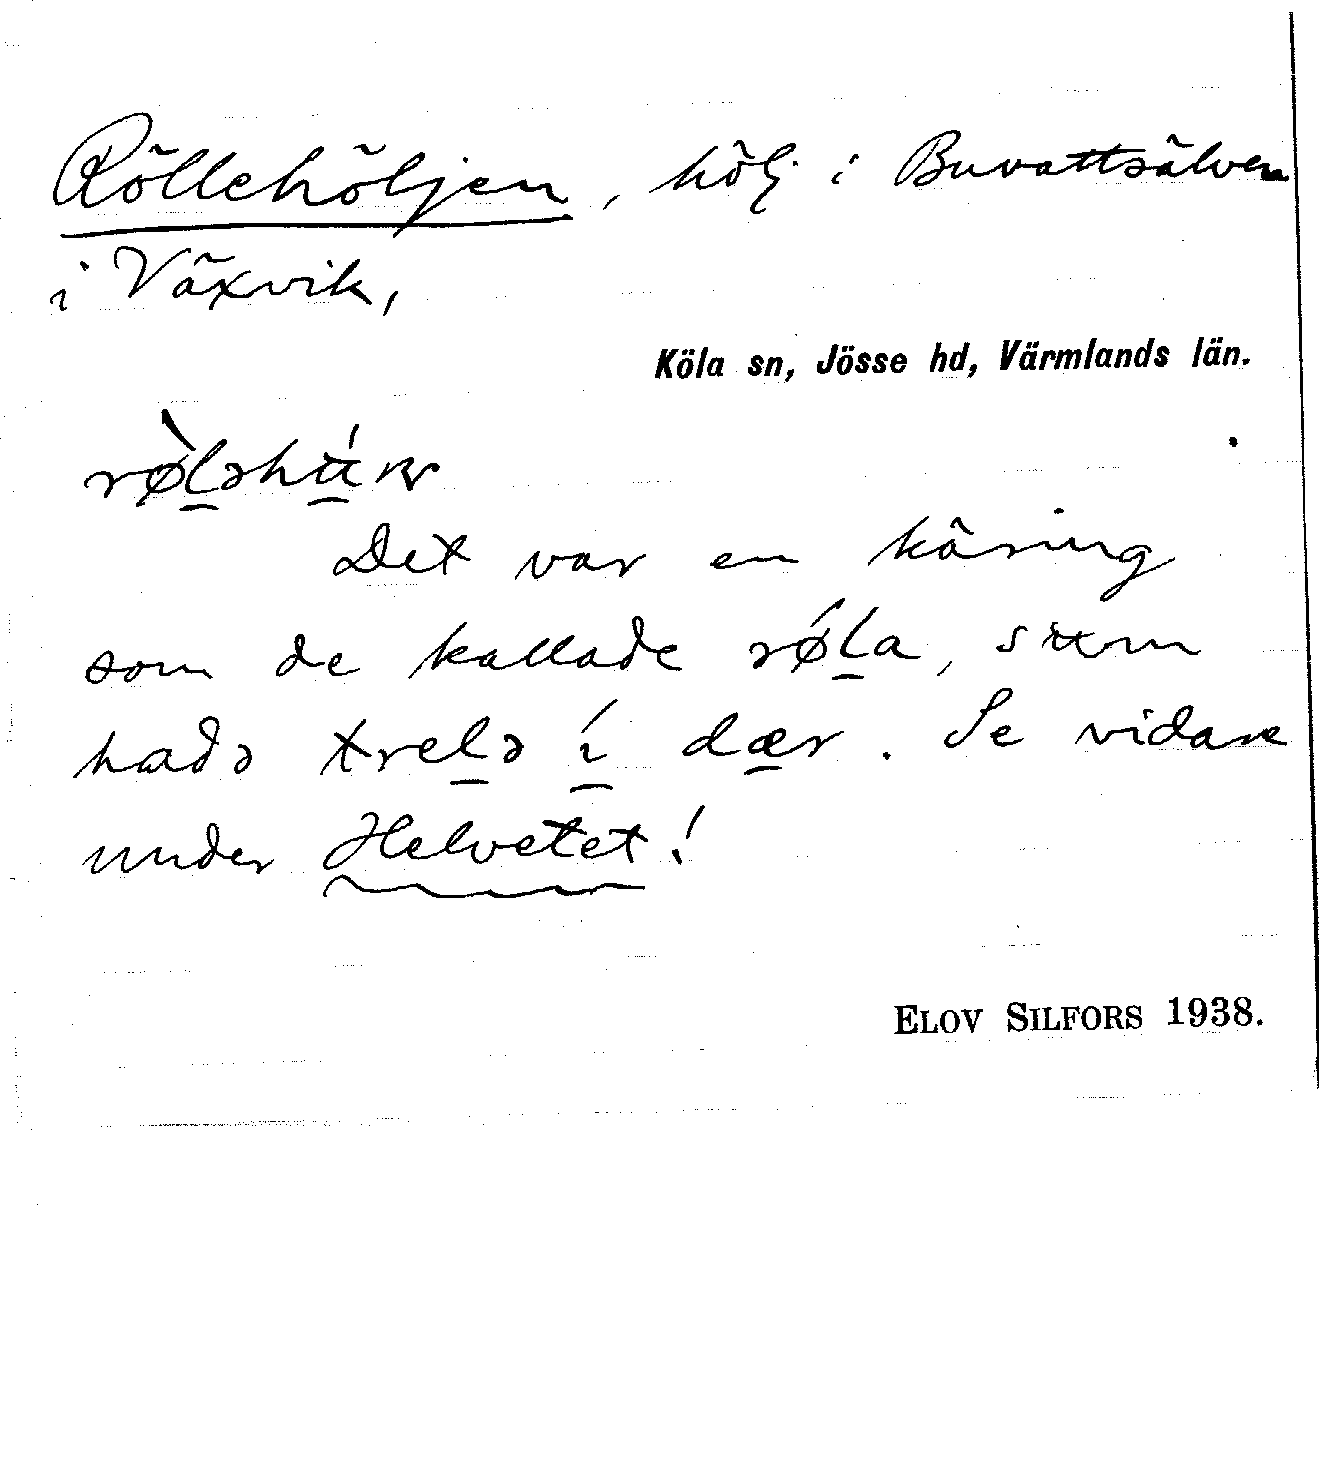 Röllehöljen, hölj i Buvattsälven
i Växvik,
Köla sn, Jösse hd, Värmlands län.
Det var en käring
som de kallade røla, sum
hadə trelə i dær. Se vidare
under Helvetet!
ELOV SILFORS 1938.